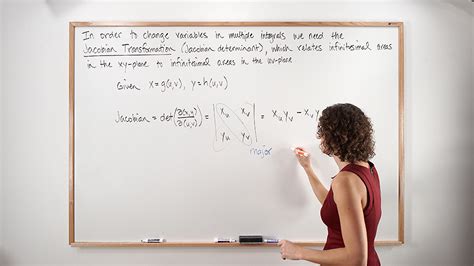 In order to change variables in multiple integrals we need the
Jacobian Transformation (Jacobian determinant), which relates infinitesimal areas
in the xy-plane to infinitesimal areas in the uv-plane
Given x=g(u,v), y=h(u,v)
Jacobian = det(∂(x,y)/∂(u,v)) = | x_u x_v ; y_u y_v | = x_u y_v - x_v y
major